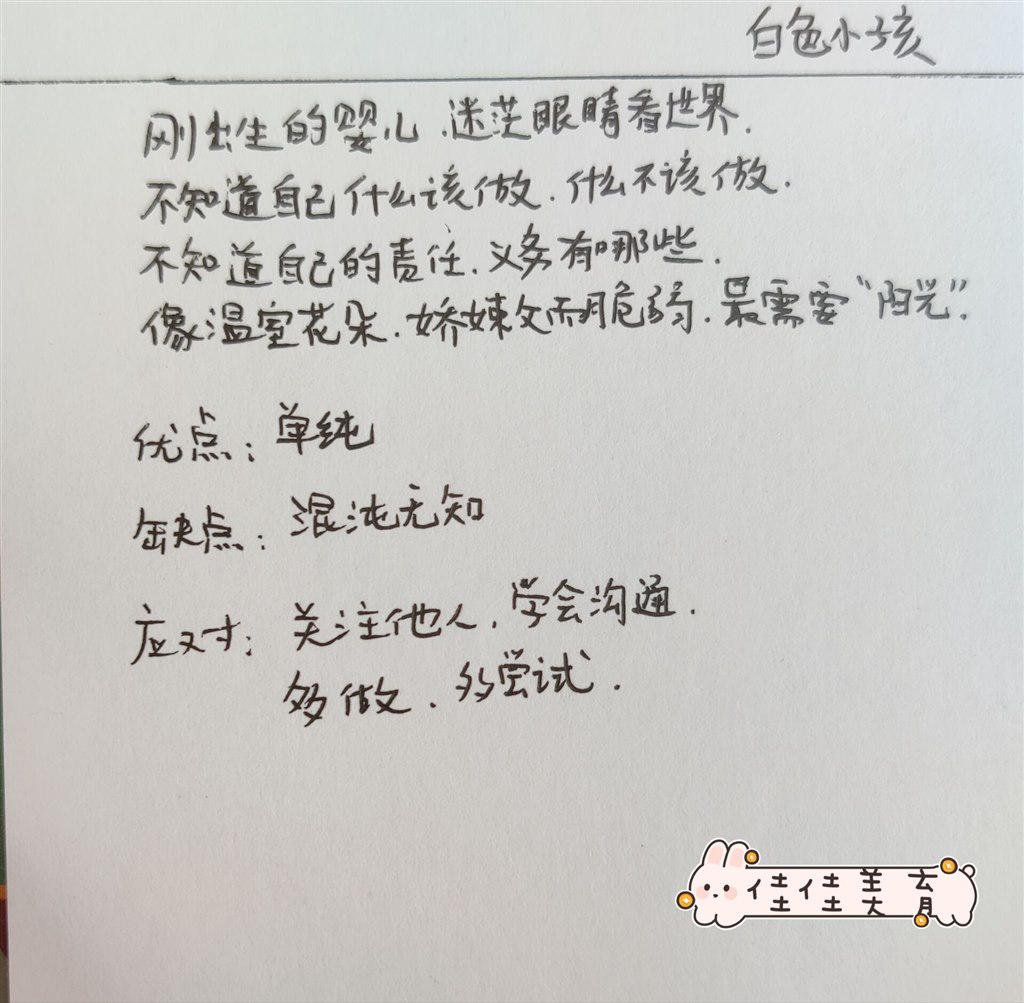 白色小孩
刚出生的婴儿.迷茫眼睛看世界.
不知道自己什么该做.什么不该做.
不知道自己的责任.义务有哪些.
像温室花朵.娇娕女而脆弱.最需要“阳光”.
优点:单纯
缺点:混沌无知
应对:关注他人.学会沟通.
多做.多尝试.
佳佳美育